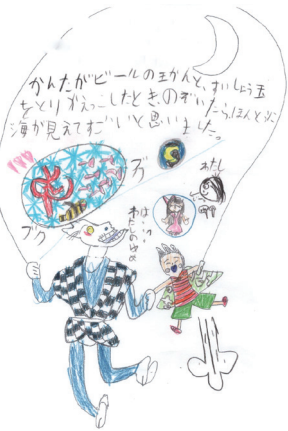 かんたがビールの王かんと、すいしょう玉
をとりかえっこしたとき、のぞいたら、ほんとうに
海が見えてすごいと思いました。
わたし
は…っ
わたしのゆめ